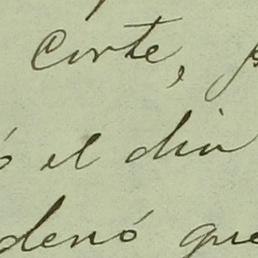 Corte, p
ó el dia
denó que